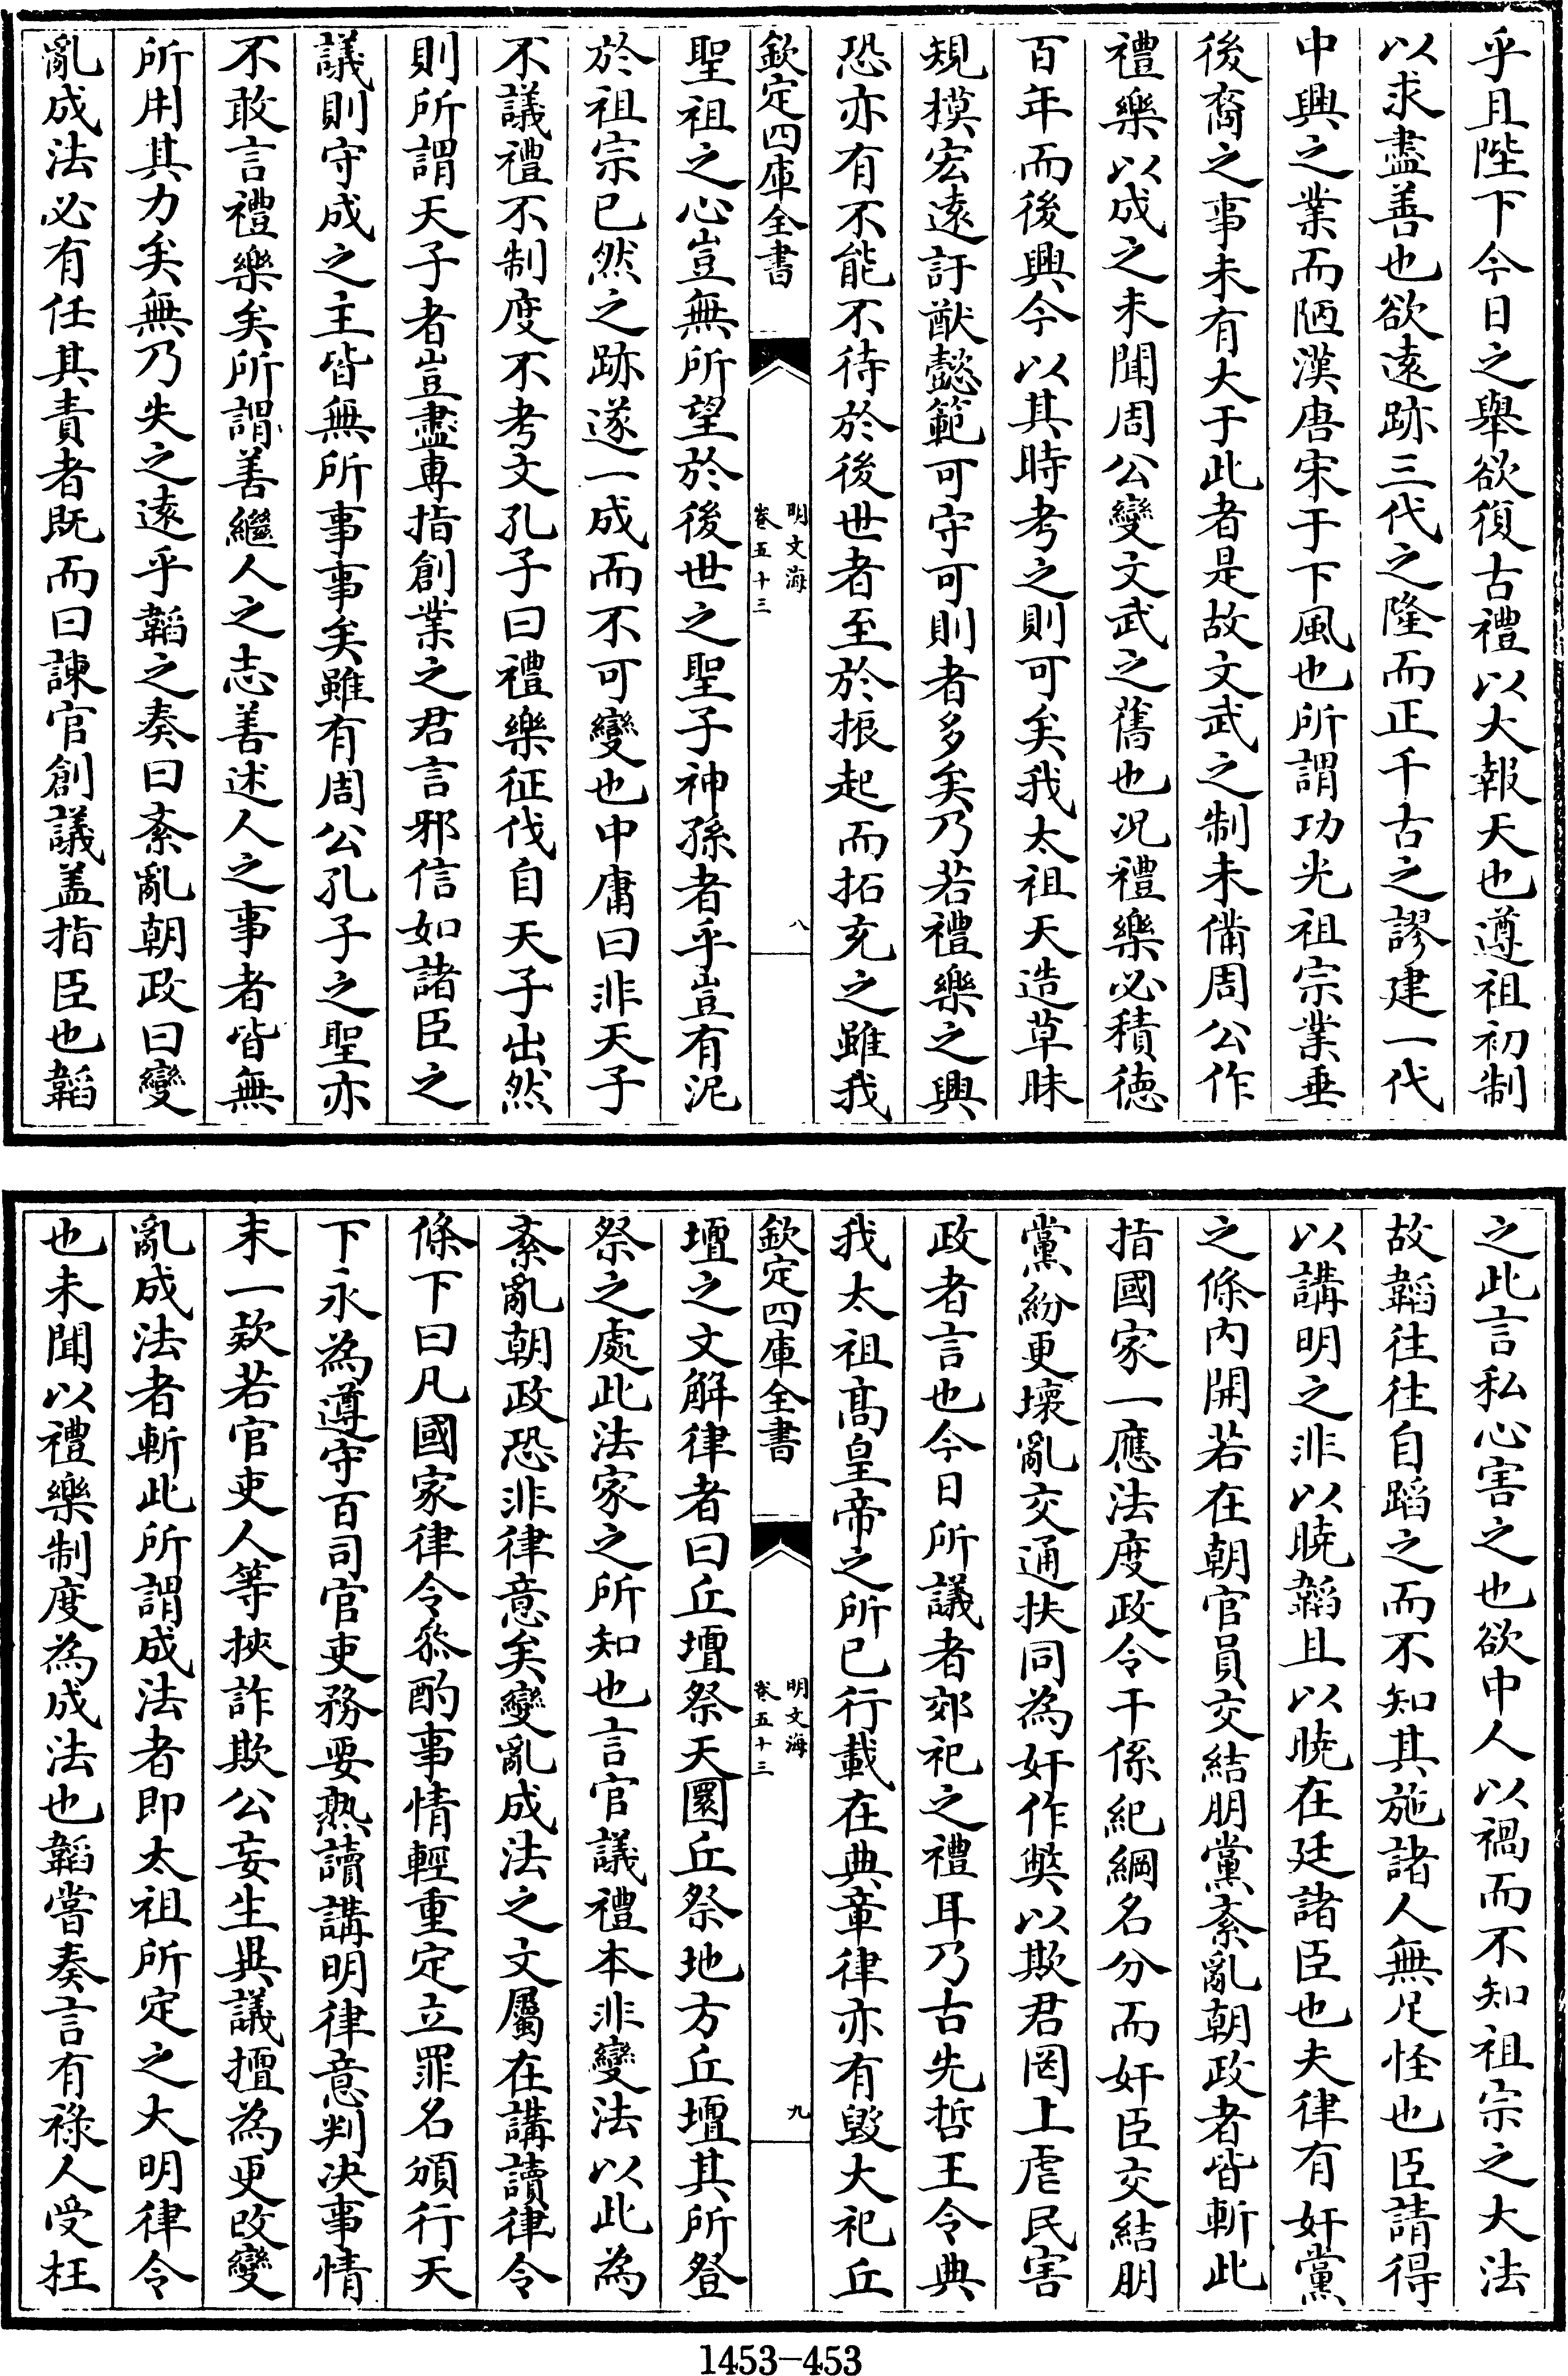 乎且陛下今日之舉欲復古禮以大報天也遵祖初制
以求盡善也欲遠跡三代之隆而正千古之謬建一代
中興之業而陋漢唐宋于下風也所謂功光祖宗業垂
後裔之事未有大于此者是故文武之制未備周公作
禮樂以成之未聞周公變文武之舊也況禮樂必積德
百年而後興今以其時考之則可矣我太祖天造草昧
規摸宏遠訏猷懿範可守可則者多矣乃若禮樂之興
恐亦有不能不待於後世者至於振起而拓充之雖我
欽定四庫全書
明文海
卷五十三
八
聖祖之心豈無所望於後世之聖子神孫者乎豈有泥
於祖宗已然之跡遂一成而不可變也中庸曰非天子
不議禮不制度不考文孔子曰禮樂征伐自天子出然
則所謂天子者豈盡專指創業之君言邪信如諸臣之
議則守成之主皆無所事事矣雖有周公孔子之聖亦
不敢言禮樂矣所謂善繼人之志善述人之事者皆無
所用其力矣無乃失之遠乎韜之奏曰紊亂朝政曰變
亂成法必有任其責者既而曰諫官創議盖指臣也韜
之此言私心害之也欲中人以禍而不知祖宗之大法
故韜往往自蹈之而不知其施諸人無足怪也臣請得
以講明之非以曉韜且以曉在廷諸臣也夫律有奸黨
之條內開若在朝官員交結朋黨紊亂朝政者皆斬此
指國家一應法度政令干係紀綱名分而奸臣交結朋
黨紛更壞亂交通扶同為奸作獘以欺君罔上虐民害
政者言也今日所議者郊祀之禮耳乃古先哲王令典
我太祖髙皇帝之所已行載在典章律亦有毀大祀丘
欽定四庫全書
明文海
卷五十三
九
壇之文解律者曰丘壇祭天圜丘祭地方丘壇其所登
祭之處此法家之所知也言官議禮本非變法以此為
紊亂朝政恐非律意矣變亂成法之文屬在講讀律令
條下曰凡國家律令叅酌事情輕重定立罪名頒行天
下永為遵守百司官吏務要熟讀講明律意判決事情
末一欵若官吏人等挾詐欺公妄生異議擅為更改變
亂成法者斬此所謂成法者即太祖所定之大明律令
也未聞以禮樂制度為成法也韜嘗奏言有祿人受枉
1453-453